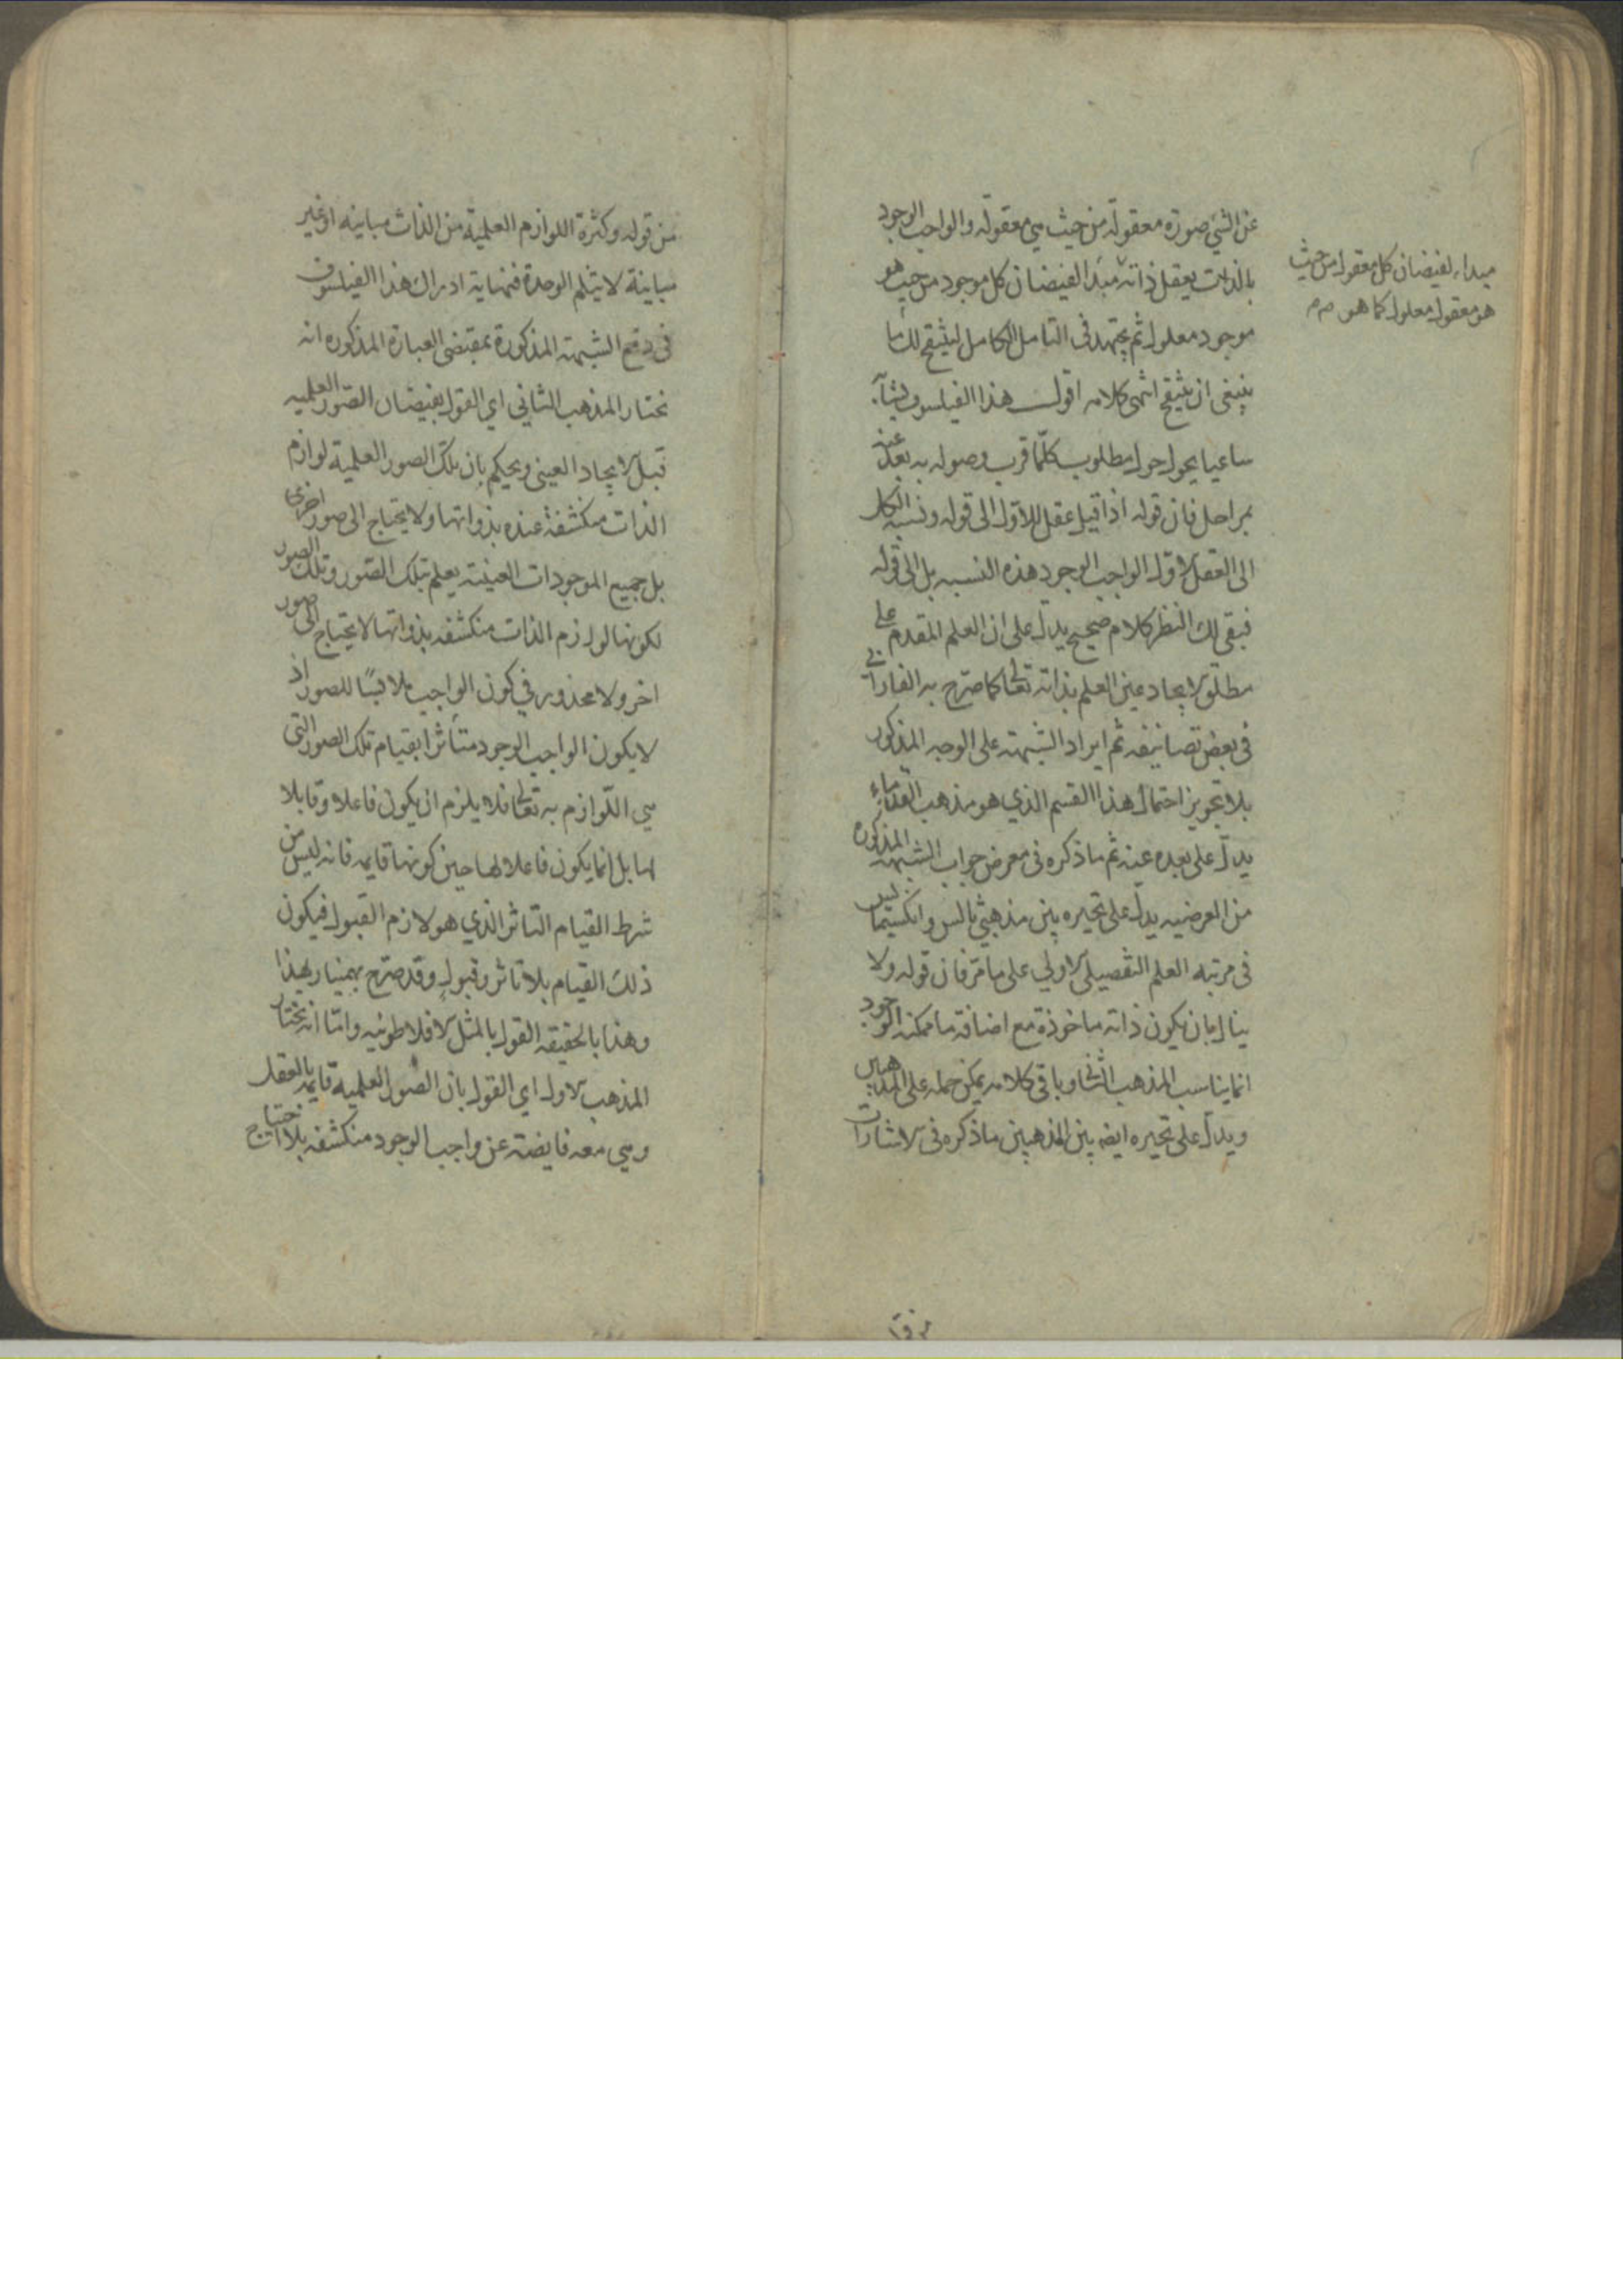 عن الشي صورة معقولة من حيث هي معقولة والواجب الوجود
بالذات يعقل ذاته مبدا لفيضان كل موجود من حيث هو
موجود معلول ثم يجتهد فى التامل الكامل ليتضح لك ما
ينبغى ان يتضح انتهى كلامه اقول هذا الفيلسوف
ساعيا يحول حول مطلوب كلّما قرب وصوله به بعد عنه
بمراحل فان قوله اذا قيل عقل للاول الى قوله ونسبة الكل
الى العقل الاول الواجب الوجود هذه النسبه بل الى قوله
فبقى لك النظر كلام صحيح يدل على ان العلم المقدم على
مطلق الايجاد عين العلم بذاته تعالى كما صرح به الفارابي
فى بعض تصانيفه ثم ايراد الشبهة على الوجه المذكور
بلا تجويز احتمال هذا القسم الذي هو مذهب القدماء
يدل على بعده عنه ثم ما ذكره فى معرض جواب الشبهة المذكوره
من العرضيه يدل على تحيره بين مذهبي ثالس وانكسيمايس
فى مرتبه العلم التفصيلى الاولي على ما مرّ فان قوله ولا
ينال بان يكون ذاته ماخوذة مع اضافة ما ممكنه الوجود
انما يناسب المذهب الثانى وباقى كلامه يمكن حمله على المذهبين
ويدل على تحيره ايضا بين المذهبين ما ذكره فى الاشارات
مبداء لفيضان كل معقول من حيث
هو معقول معلول كما هو م م
من قوله وكثرة اللوازم العلمية من الذات مباينه او غير
مباينة لا يثلم الوحدة فنهاية ادراك هذا الفيلسوف
فى دفع الشبهة المذكورة بمقتضى العبارة المذكوره انه
نختار المذهب الثاني اي القول بفيضان الصور العلميه
قبل الايجاد العينى ويحكم بان تلك الصور العلمية لوازم
الذات منكشفة عنده بذواتها ولا يحتاج الى صور اخرى
بل جميع الموجودات العينية يعلم بتلك الصور وتلك الصور
لكونها لوازم الذات منكشفه بذواتها لا يحتاج الى صور
اخر ولا محذور في كون الواجب ملابسًا للصور اذ
لا يكون الواجب الوجود متأثرا بقيام تلك الصور التى
هي اللوازم به تعالى فلا يلزم ان يكون فاعلا وقابلا
لها بل انما يكون فاعلا لها حين كونها قايمه فانه ليس من
شرط القيام التاثر الذي هو لازم القبول فيكون
ذلك القيام بلا تاثر وقبول وقد صرح بهمنيار بهذا
وهذا بالحقيقه القول بالمثل الافلاطونيه وامّا انه نختار
المذهب الاول اي القول بان الصور العلمية قايمه بالعقل
وهي معه فايضة عن واجب الوجود منكشفه بلا احتياج